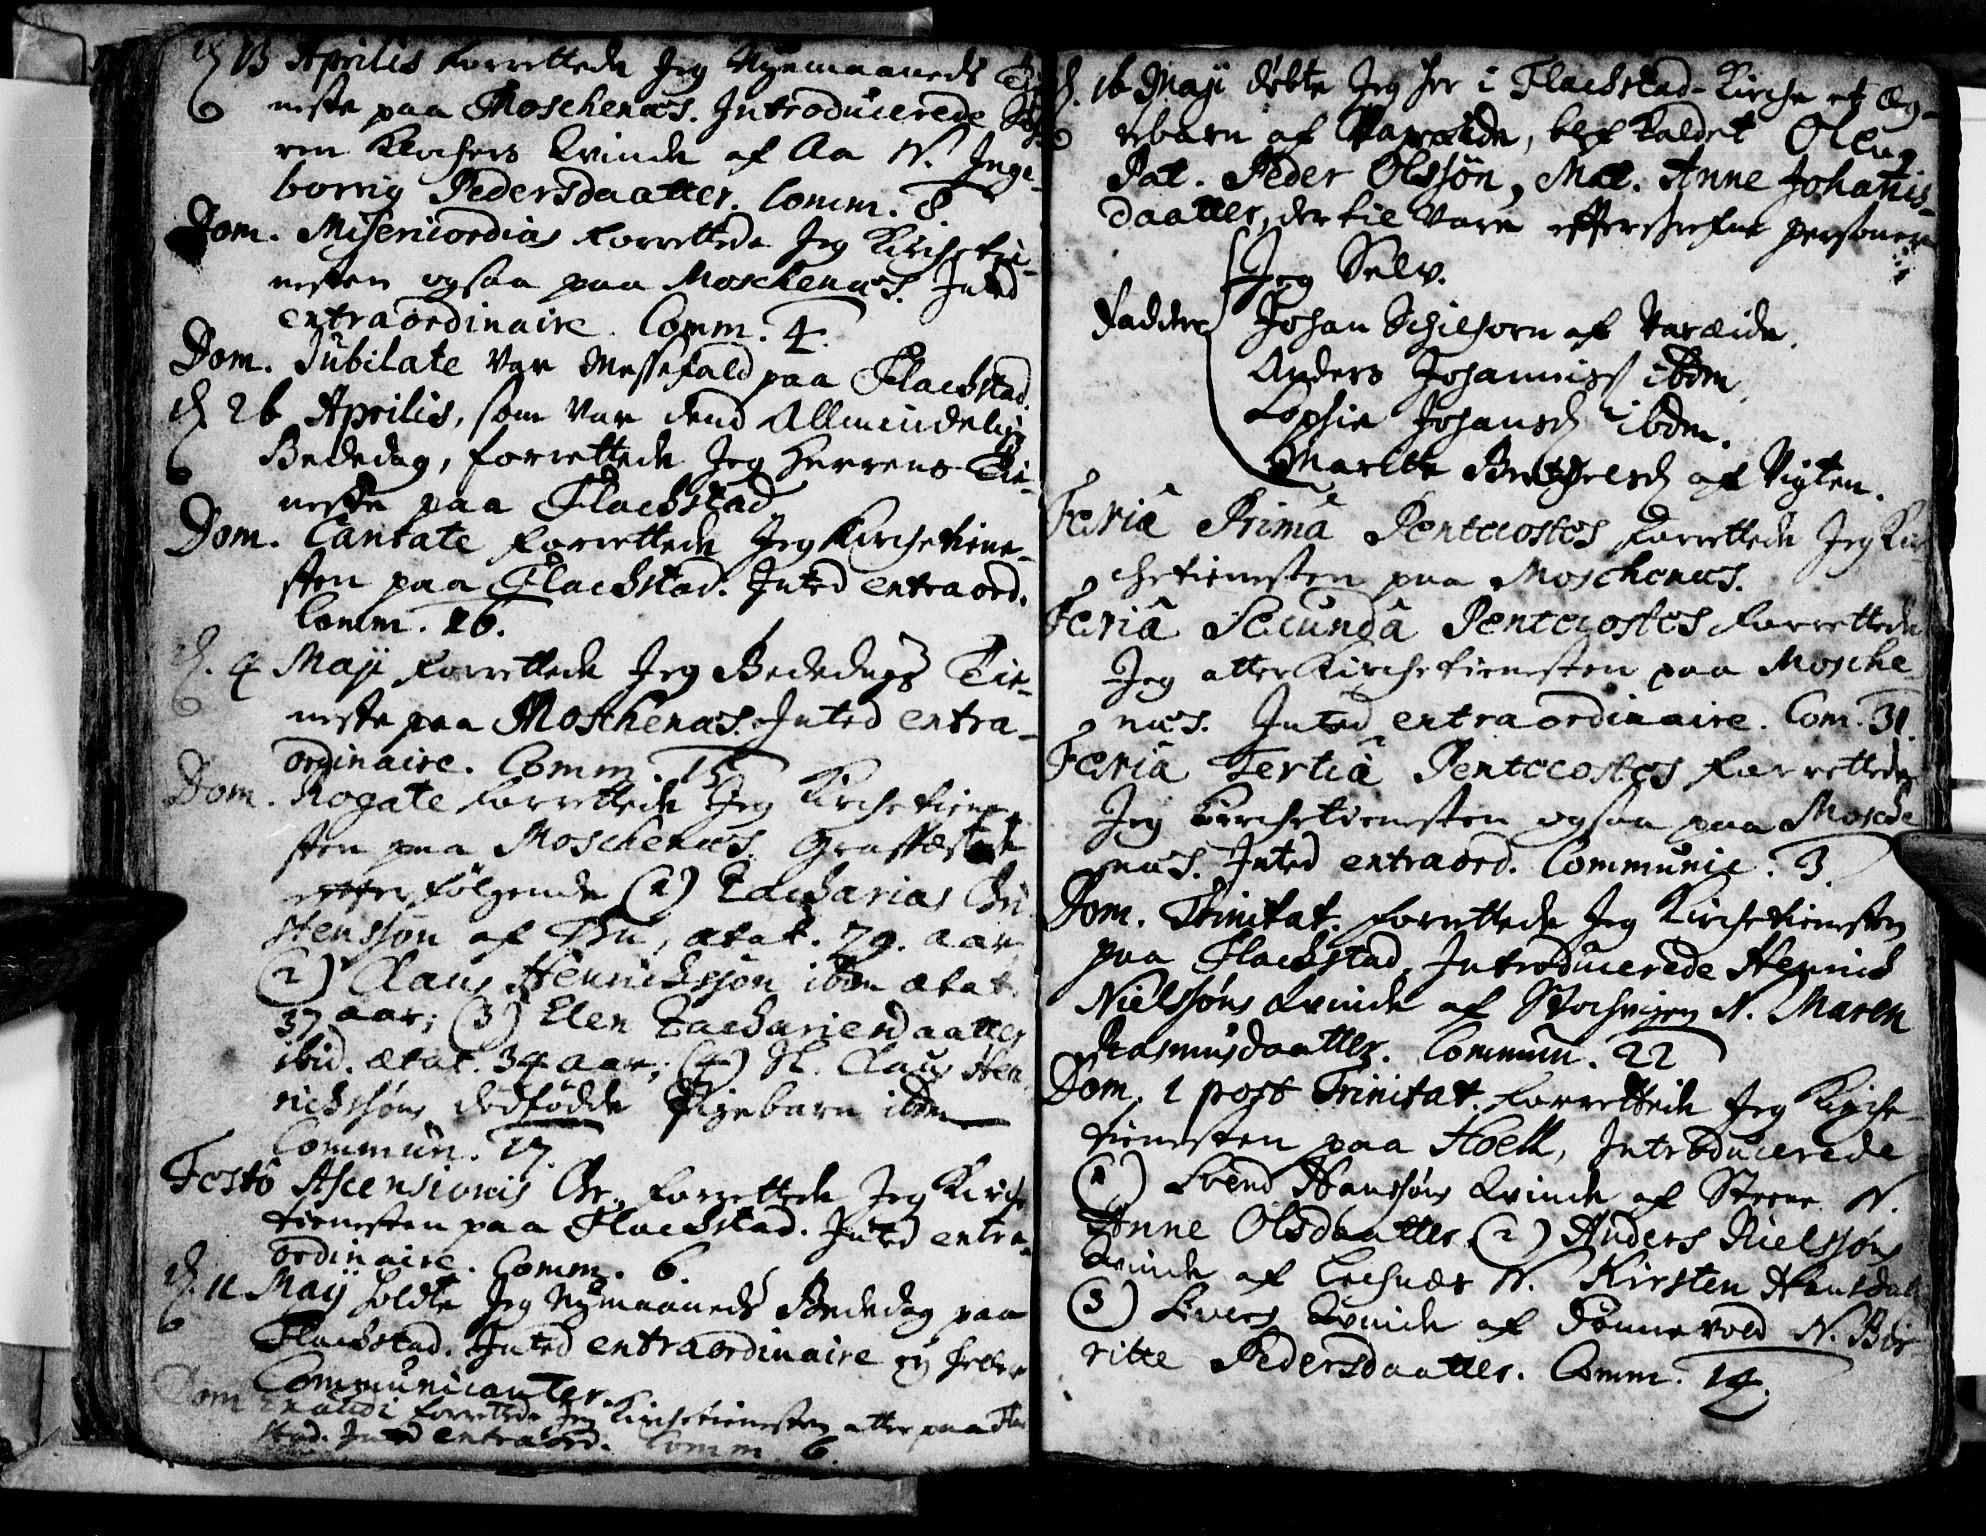 d. 13 Aprilis forrettede Jeg Nyemaaneds Tie-
neste paa Moschenæs. Introducerede
ren Klochers Qvinde af Aa N. Inge-
borrig Pedersdaatter. Comm. 8.
Dom. Misericordias forrettede Jeg Kirchetie-
nesten ogsaa paa Moschenæs. Inted
extraordinaire. Comm. 4.
Dom. Jubilate Var Messefald paa Flackstad.
d. 26 Aprilis, som Var dend Allmindelig
Bededag, forrettede Jeg Herrens Tie-
neste paa Flackstad
Dom. Cantate forrettede Jeg Kirchetiene-
sten paa Flackstad. Inted extraord.
Comm. 26.
d. 4 Maji forrettede Jeg Bededags Tie-
neste paa Moschenæs. Inted extra-
ordinaire. Comm. 15
Dom. Rogate forrettede Jeg Kirchetiene-
sten paa Moschenæs. Graffæstede
efterfølgende (1) Zacharias Chri
stensson af Bu, ætat. 79. aar
(2) Claus Henrichssøn ibdm ætat.
37 aar; (3) Elen Zachariesdaatter
ibid. ætat. 34 aar; (4) Sl. Claus Hen
richssøns dødfødde Pigebarn ibdm
Commun. 17.
Festo Ascensionis Chr. forrettede Jeg Kirche
tienesten paa Flackstad. Inted extra-
ordinaire. Comm. 6.
d. 11 Maij holdte Jeg Nymaaneds Bededag paa
Flackstad. Inted extraordinaire ey heller
Communicanter.
Dom Exaudi forrettede Jeg Kirchetienesten atter paa Flac
stad. Inted extraord. Comm. 6.
d. 16 Maji døbte Jeg her i Flackstad-Kirche et Æg-
tebarn af Vareide, blef kaldet Oleug
Pat. Peder Olssøn, Mat. Anne Johanis-
daatter, dertil Vare efterskrefne personer
Jeg Selv.
Faddere Johan Schielhorn af Vareide.
Anders Johanniss ibdm.
Sophie Johansd ibdm.
Maritte Berthelsd af Vigten.
Feriâ Primâ Pentecostes forrettede Jeg Kir
chetienesten paa Moschenæs.
Feriâ Secundâ Pentecostes forrettede
Jeg atter Kirchetienesten paa Mosche
næs. Inted extraordinaire. Com. 31.
Feriâ Tertiâ Pentecostes forrettede
Jeg Kirchetienesten ogsaa paa Mosche
næs. Inted extraord. Communic. 3.
Dom. Trinitat. forrettede Jeg Kirchetienesten
paa Flackstad, Introducerede Henrich
Nielssøns Qvinde af N. Maren
Rasmusdaatter. Commun. 22
Dom. 1 post Trinitat. forrettede Jeg Kirche-
tienesten paa Hoell, Introducerede
(1) Svend Hanssøns Qvinde af Steene N.
Anne Olsdaatter (2) Anders Nielssøns
Qvinde af Lechnæs N. Kirsten Hansdatt
(3) Qvinde af Sønnevold N. Bir
ritte Pedersdaatter. Comm. 14.